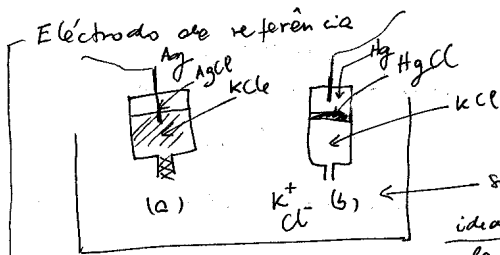 Eléctrodo de referência
Ag
AgCl
KCl
Hg
HgCl
KCl
(a)
K+
Cl-
(b)
s
idea